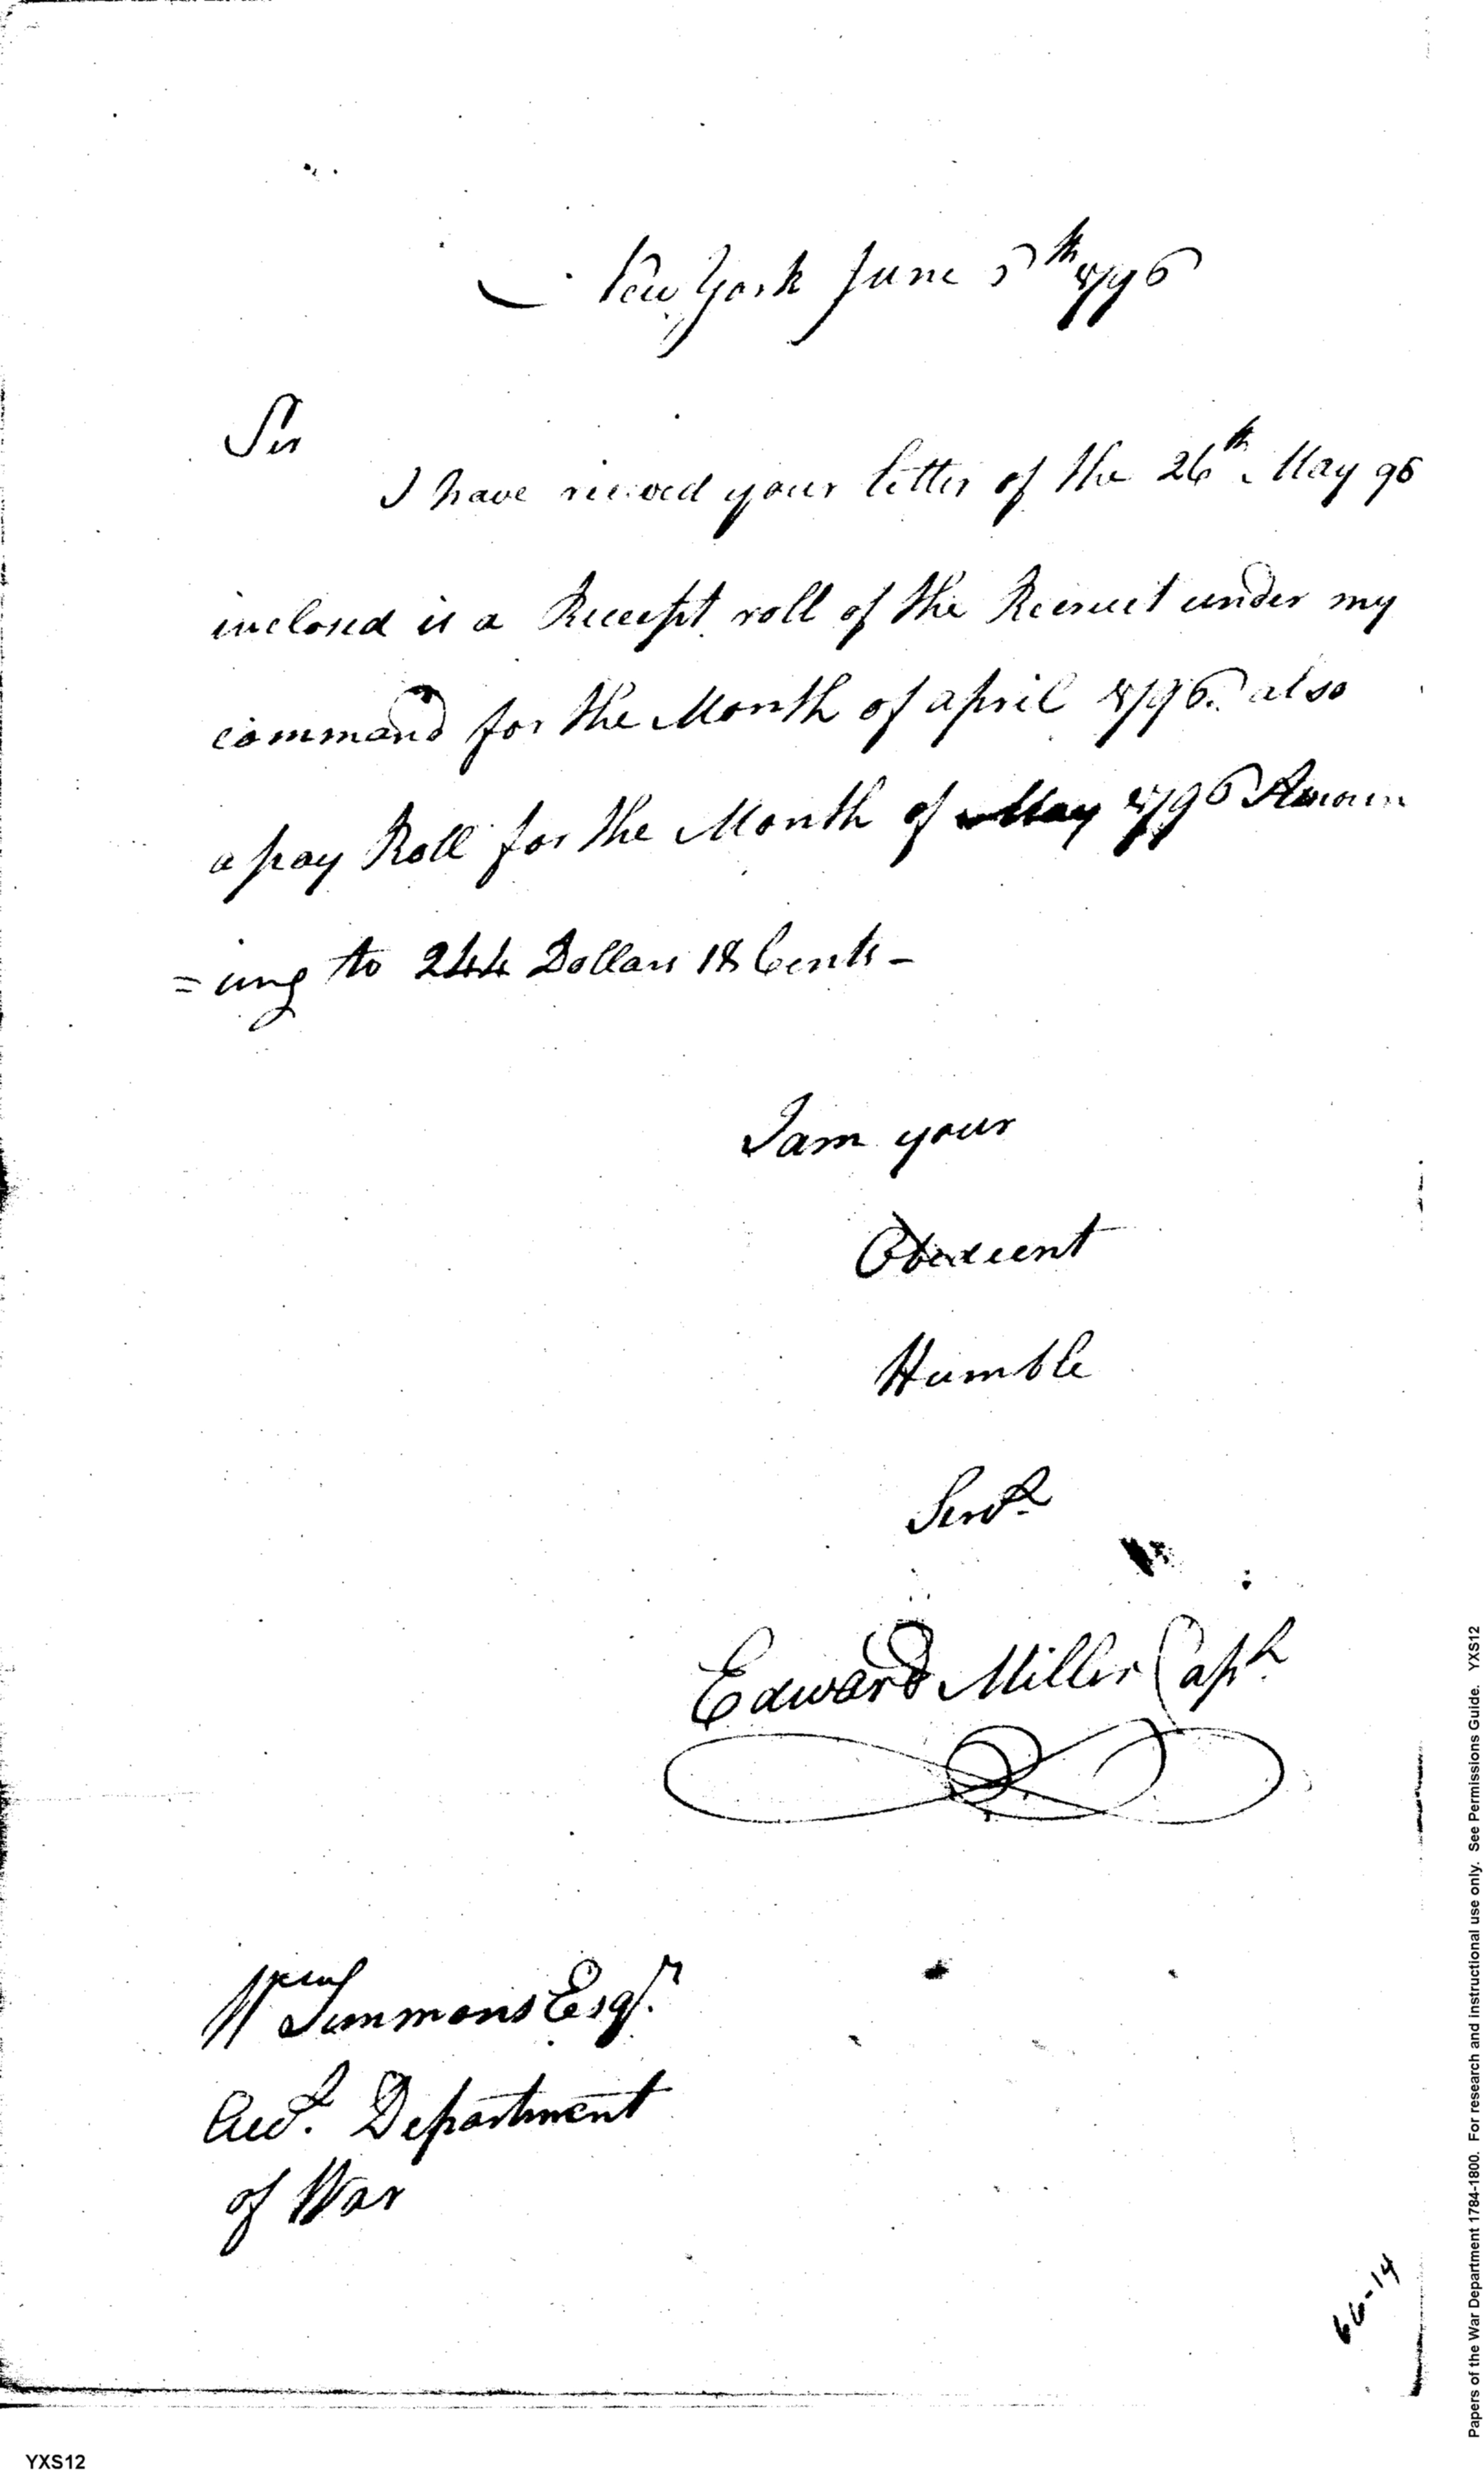 New York June 5th 1796
Sir
I have recieved your letter of the 26th May 96
inclosed is a Receipt roll of the Recruit under my
command for the Month of april 1796. also
a pay Roll for the Month of May 1796 Amoun
=ing to 244 Dollars 18 Cents -
I am your
Obedient
Humble
Servt
Edward Miller Capt.
Wm Simmons Esqr.
Acct. Department
of War
66-14
YXS12
Papers of the War Department 1784-1800. For research and instructional use only. See Permissions Guide. YXS12